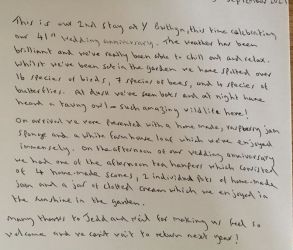 September 2021
This is our 2nd stay at Y Bwthyn, this time celebrating
our 41st wedding anniversary. The weather has been
brilliant and we've really been able to chill out and relax.
Whilst we've been sat in the garden we have spotted over
16 species of birds, 7 species of bees, and 4 species of
butterflies. At dusk we've seen bats and at night have
heard a tawny owl - such amazing wildlife here!
On arrival we were presented with a home made, raspberry jam
sponge and a white farmhouse loaf which we've enjoyed
immensely. On the afternoon of our wedding anniversary
we had one of the afternoon tea hampers which consisted
of 4 home-made scones, 2 individual pots of home-made
jam and a jar of clotted cream which we enjoyed in
the sunshine in the garden.
Many thanks to Jedd and for making us feel so
welcome and we can't wait to return next year!